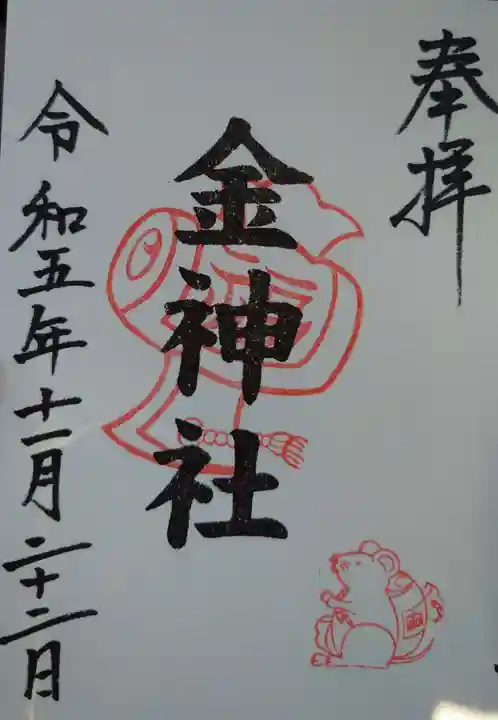 奉拝
金神社
令和五年十一月二十二日